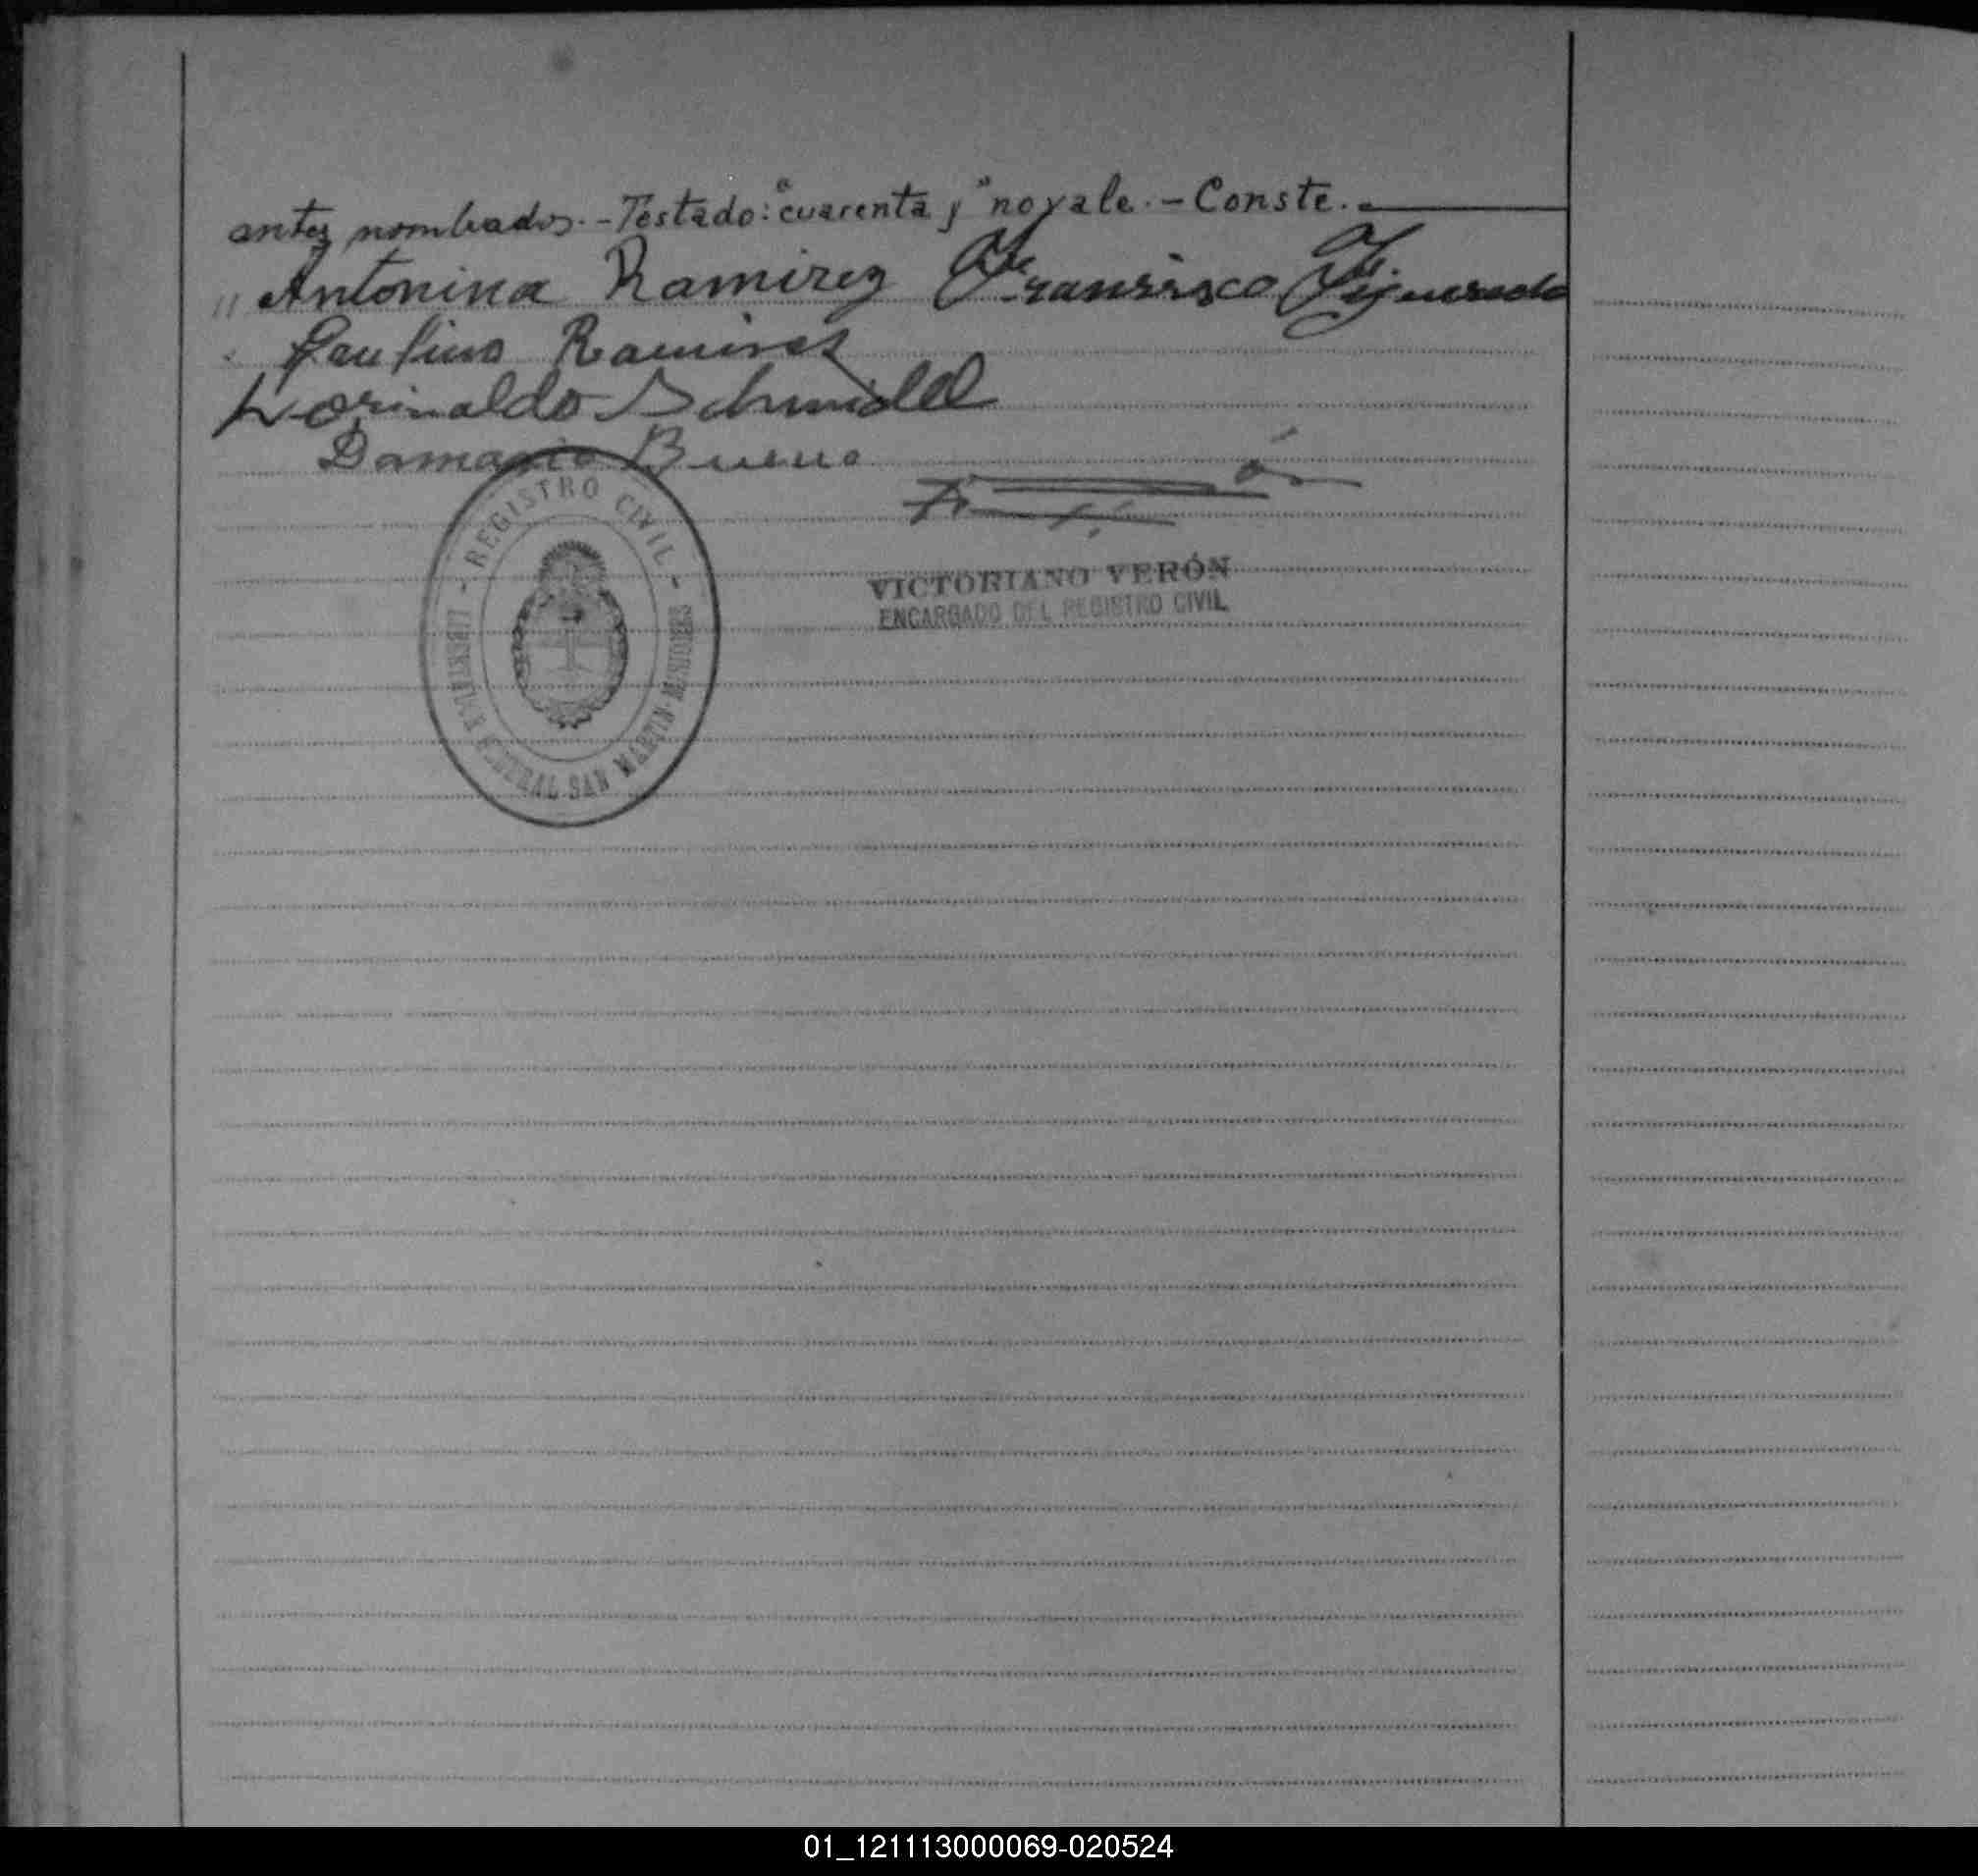 antes nombrados.-Testado: "cuarenta y" no vale.-Conste.-
" Antonina Ramirez Fransisco Figueredo
Paulino Ramirez
Lorinaldo Schmidel
Damasio Bueno
VICTORIANO VERÓN
ENCARGADO DEL REGISTRO CIVIL
- REGISTRO CIVIL -
LIBERTADOR GENERAL SAN MARTIN MISIONES
01_121113000069-020524